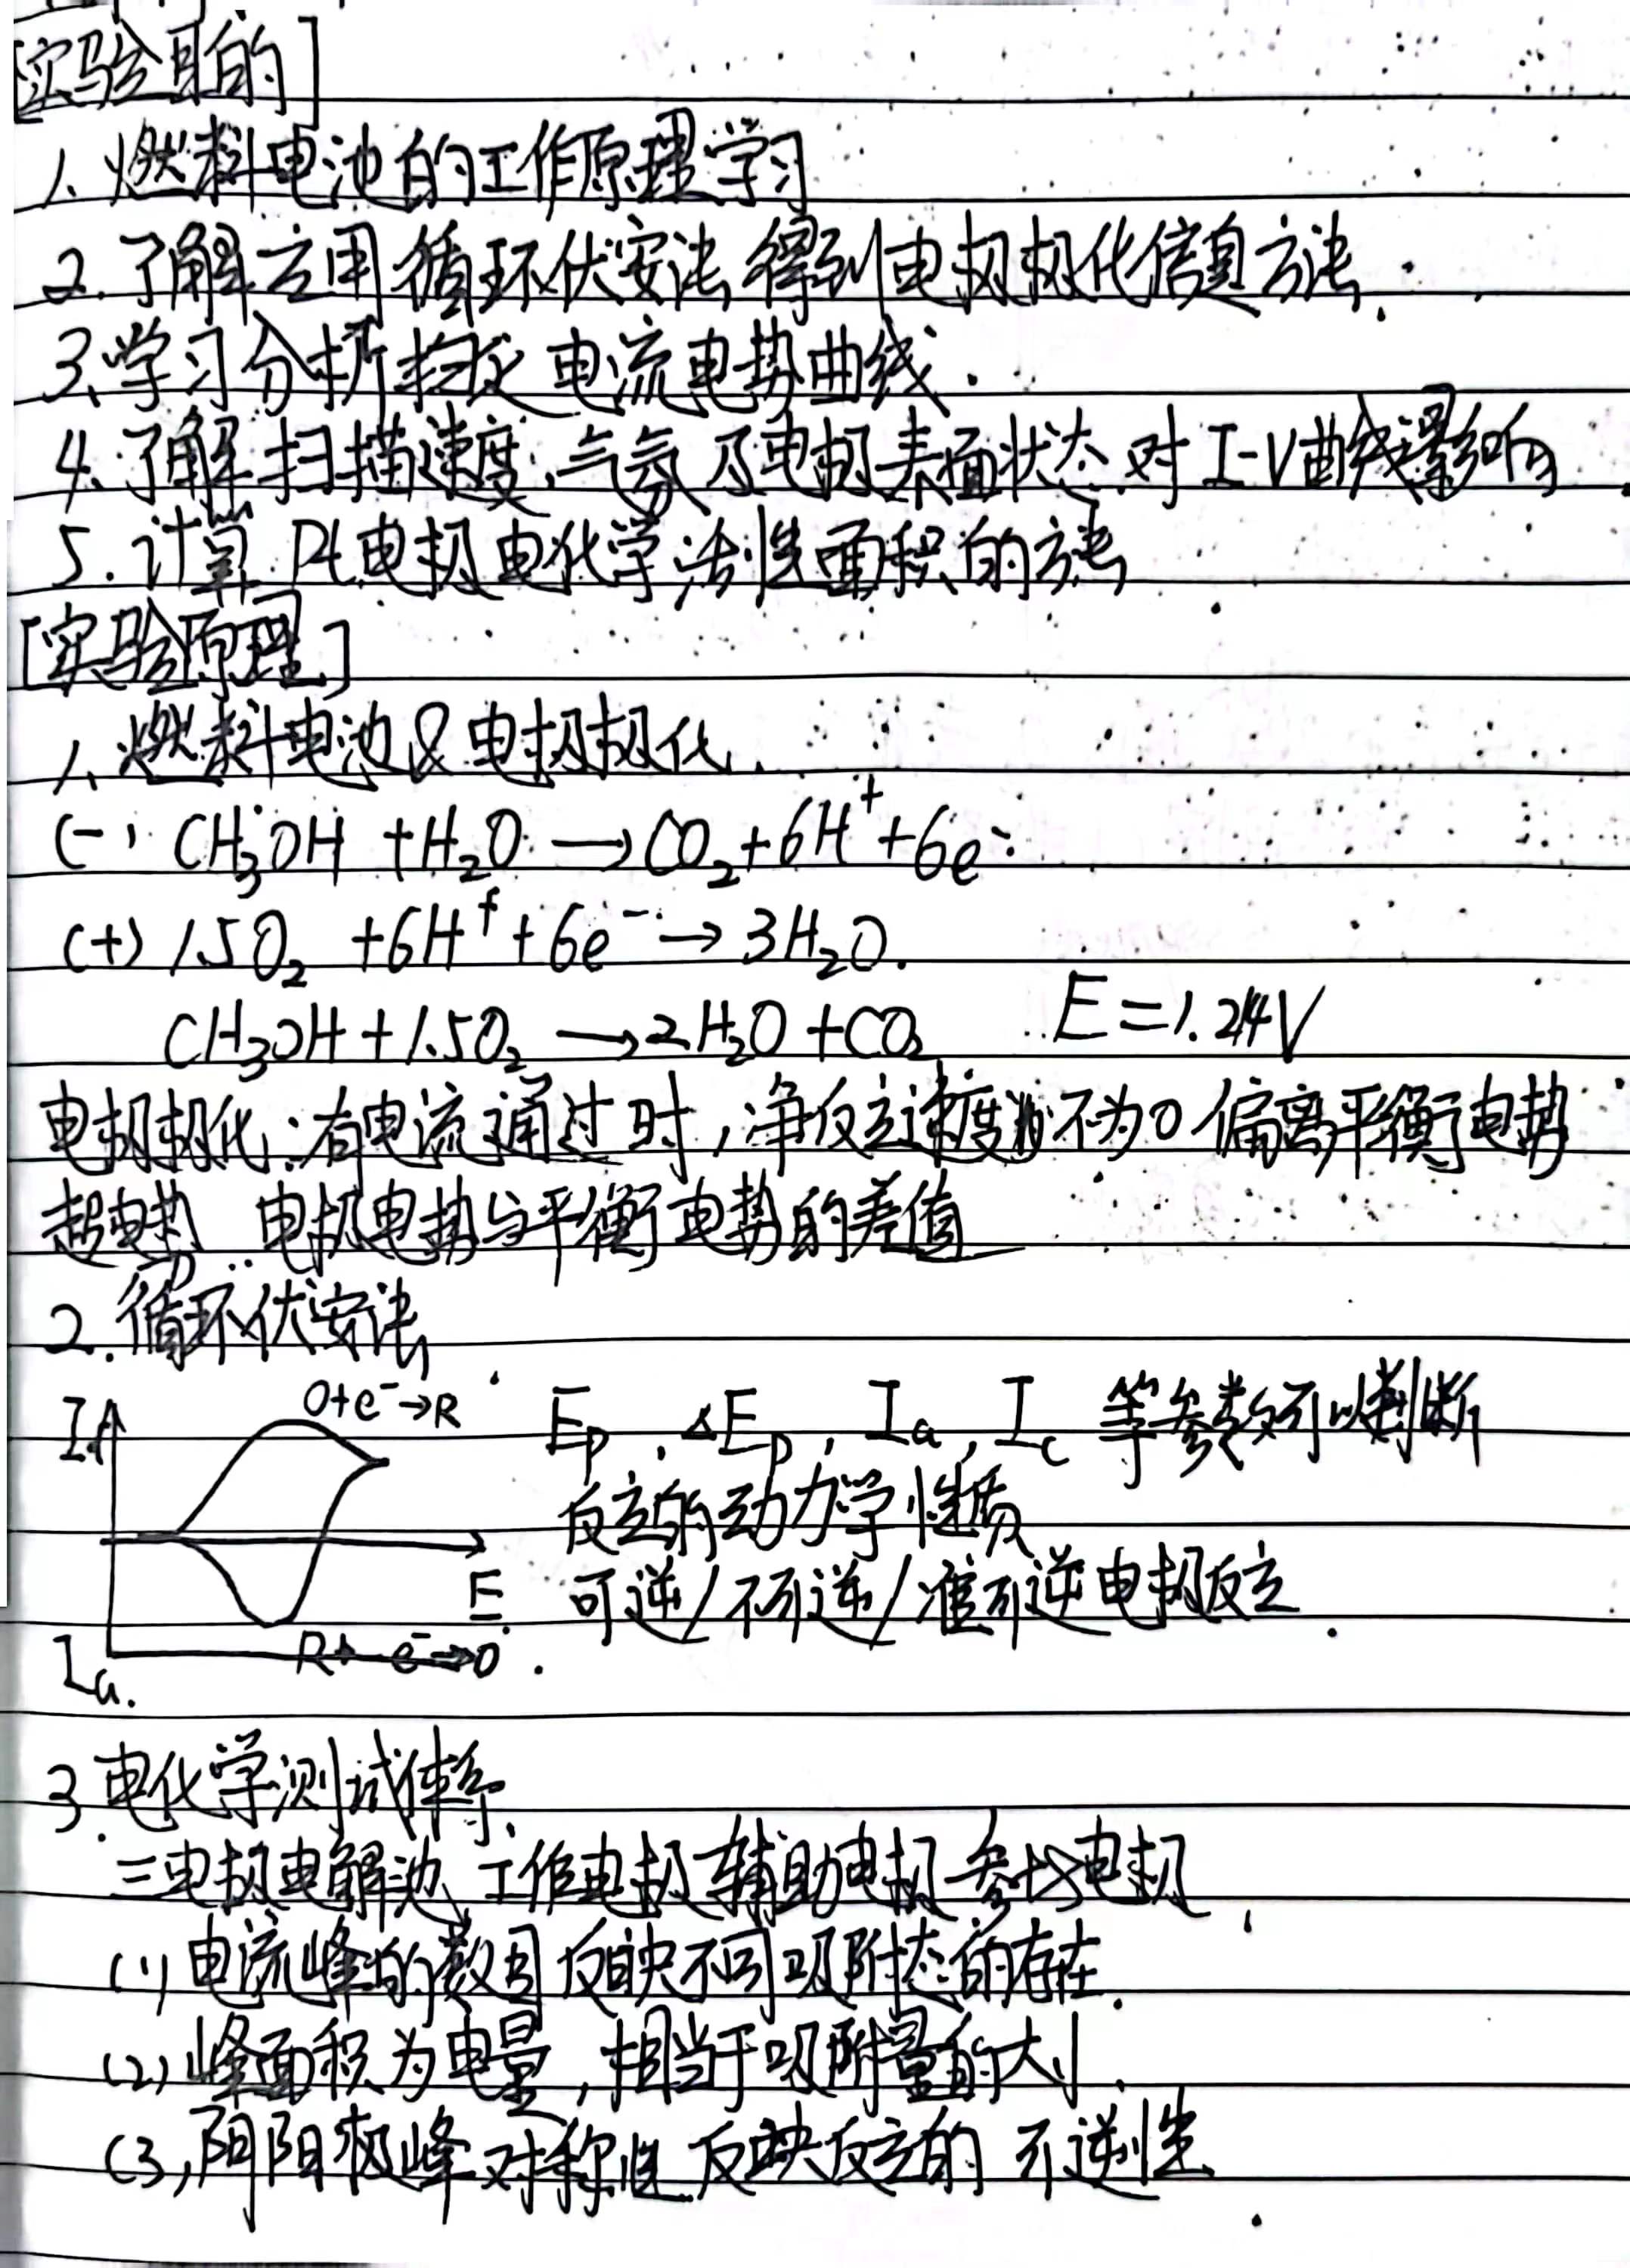 [实验目的]
1. 燃料电池的工作原理学习
2. 了解应用循环伏安法得到电极极化信息方法.
3. 学习分析 电流电势曲线.
4. 了解扫描速度、气氛及电极表面状态对I-V曲线影响.
5. 计算Pt电极电化学活性面积的方法
[实验原理]
1. 燃料电池&电极极化.
(-) CH₃OH + H₂O → CO₂ + 6H⁺ + 6e⁻
(+) 1.5O₂ + 6H⁺ + 6e⁻ → 3H₂O.
CH₃OH + 1.5O₂ → 2H₂O + CO₂ E = 1.24V
电极极化:有电流通过时,净反应速度不为0 偏离平衡电势
超电势:电极电势与平衡电势的差值
2. 循环伏安法
Ic O+e⁻→R Ep, ΔEp, Ia, Ic 等参数可以判断
反应的动力学性质
E 可逆/不可逆/准可逆电极反应.
Ia. R - e⁻→O.
3. 电化学测试体系.
三电极电解池 工作电极 辅助电极 参比电极,
(1) 电流峰的数目反映不同吸附态的存在.
(2) 峰面积为电量,相当于吸附量的大小.
(3) 阴阳极峰对称性反映反应的可逆性.